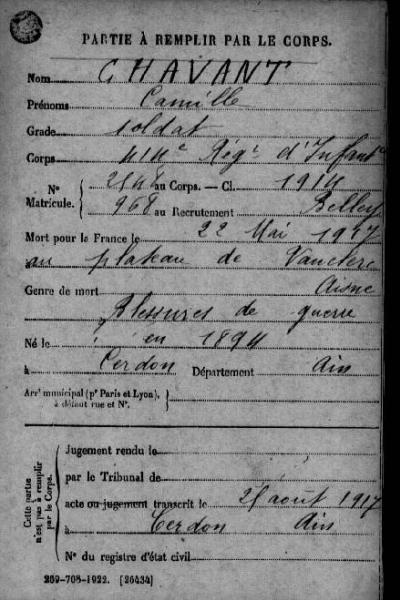 PARTIE À REMPLIR PAR LE CORPS.
Nom CHAVANT
Prénoms Camille
Grade soldat
Corps Régt d'Infantie
N° Matricule. au Corps. — Cl. 1914
968 au Recrutement Belley
Mort pour la France le 22 Mai 1917
à au plateau de Vauclerc
Aisne
Genre de mort Blessures de guerre
Né le en 1894
à Cerdon Département Ain
Arrt municipal (pr Paris et Lyon), à défaut rue et N°.
Cette partie n'est pas à remplir par le Corps.
Jugement rendu le
par le Tribunal de
acte ou jugement transcrit le août 1917
à Cerdon Ain
N° du registre d'état civil
269-708-1922. [26434]